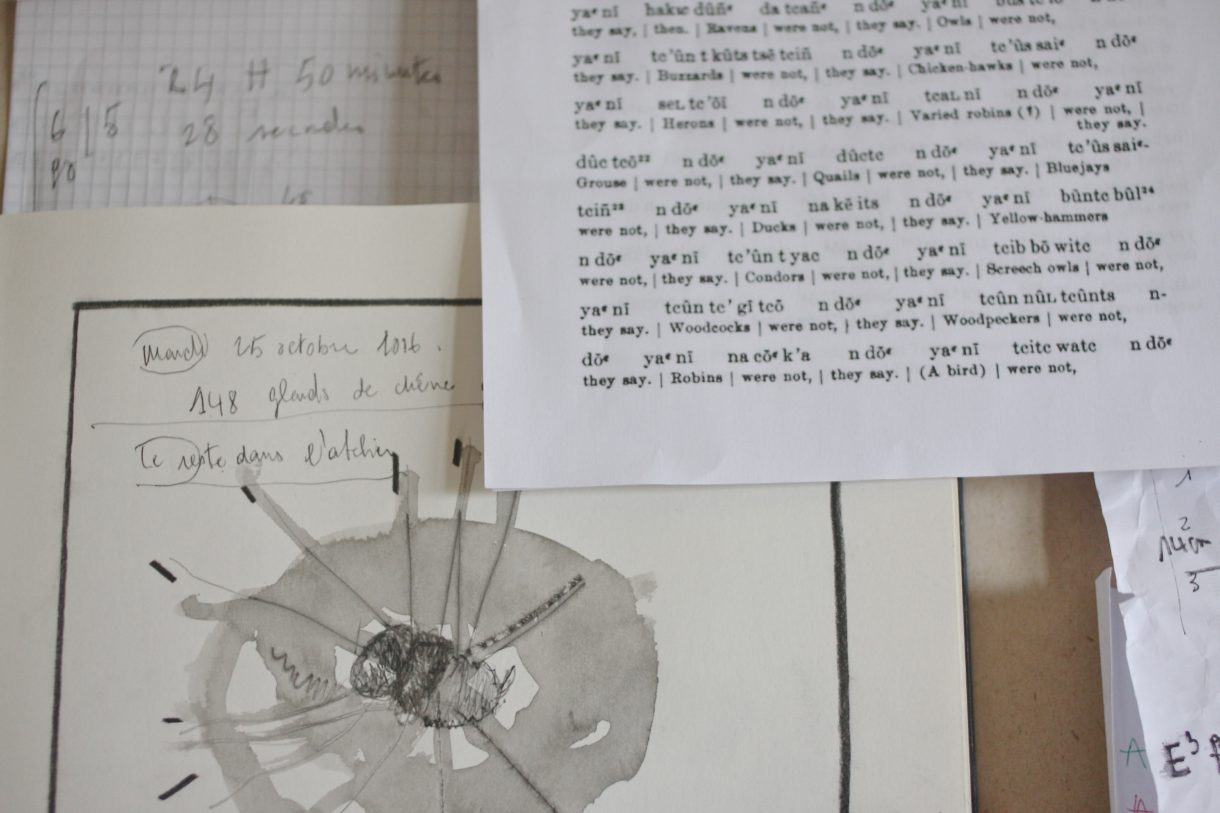 24 H 50 minutes
6 | 5 28 secondes
90
yaᵋ nī hakw dûñᵋ da tcañᵋ n dōᵋ yaᵋ nī
they say, | then. | Ravens | were not, | they say. | Owls | were not,
yaᵋ nī tc'ûn t kûts tsē tciñ n dōᵋ yaᵋ nī tc'ûs saiᵋ n dōᵋ
they say. | Buzzards | were not, | they say. | Chicken-hawks | were not,
yaᵋ nī seʟ tc'ōī n dōᵋ yaᵋ nī tcaʟ nī n dōᵋ yaᵋ nī
they say. | Herons | were not, | they say. | Varied robins (?) | were not, |
they say.
dûc tcō²² n dōᵋ yaᵋ nī dûctc n dōᵋ yaᵋ nī tc'ûs saiᵋ-
Grouse | were not, | they say. | Quails | were not, | they say. | Bluejays
tciñ²³ n dōᵋ yaᵋ nī na kē its n dōᵋ yaᵋ nī bûntc bûl²⁴
were not, | they say. | Ducks | were not, | they say. | Yellow-hammers
n dōᵋ yaᵋ nī tc'ûn t yac n dōᵋ yaᵋ nī tcib bō witc n dōᵋ
were not, | they say. | Condors | were not, | they say. | Screech owls | were not,
yaᵋ nī tcûn tc' gī tcō n dōᵋ yaᵋ nī tcûn nûʟ tcûnts n-
they say. | Woodcocks | were not, | they say. | Woodpeckers | were not,
dōᵋ yaᵋ nī na cōᵋ k'a n dōᵋ yaᵋ nī tcitc watc n dōᵋ
they say. | Robins | were not, | they say. | (A bird) | were not,
Mardi 25 octobre 1016.
148 glands de chêne
Le reste dans l'atelier
1
2
14 cm
3
A
E³
A